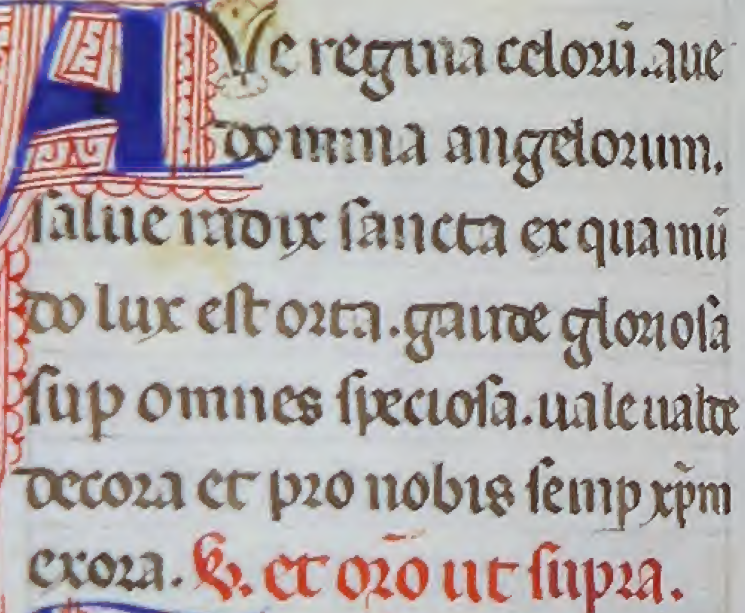 AVe regina celoꝝ̄.aue
domina angelorum.
salue radix sancta ex qua mū
do lux est orta.gaude gloriosa
sup omnes speciosa.uale ualde
decora et pro nobis semp xp̄m
exora. ℣. et orō ut supra.